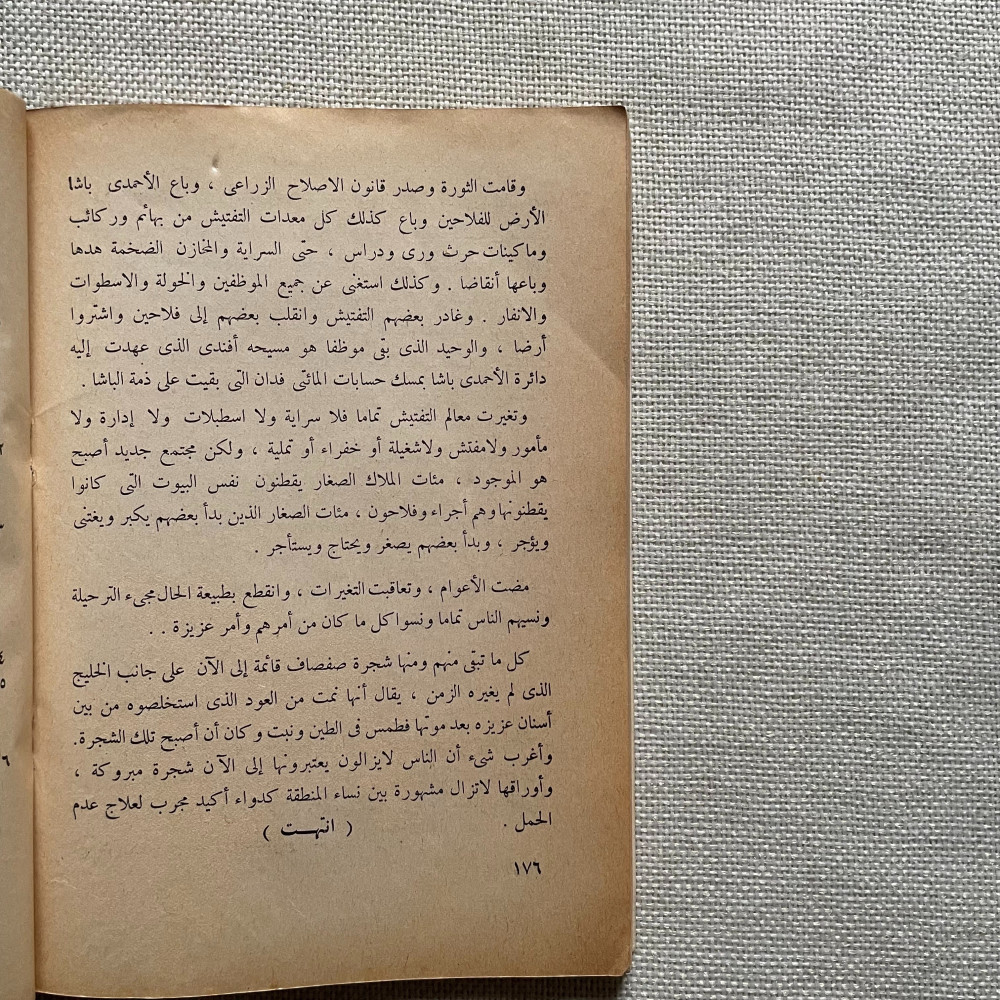 وقامت الثورة وصدر قانون الاصلاح الزراعى ، وباع الأحمدى باشا
الأرض للفلاحين وباع كذلك كل معدات التفتيش من بهائم وركائب
وماكينات حرث ورى ودراس ، حتى السراية والمخازن الضخمة هدها
وباعها أنقاضا . وكذلك استغنى عن جميع الموظفين والخولة والاسطوات
والانفار . وغادر بعضهم التفتيش وانقلب بعضهم إلى فلاحين واشتروا
أرضا ، والوحيد الذى بقى موظفا هو مسيحه أفندى الذى عهدت إليه
دائرة الأحمدى باشا بمسك حسابات المائتى فدان التى بقيت على ذمة الباشا .
وتغيرت معالم التفتيش تماما فلا سراية ولا اسطبلات ولا إدارة ولا
مأمور ولامفتش ولاشغيلة أو خفراء أو تملية ، ولكن مجتمع جديد أصبح
هو الموجود ، مئات الملاك الصغار يقطنون نفس البيوت التى كانوا
يقطنونها وهم أجراء وفلاحون ، مئات الصغار الذين بدأ بعضهم يكبر ويغتنى
ويؤجر ، وبدأ بعضهم يصغر ويحتاج ويستأجر .
مضت الأعوام ، وتعاقبت التغيرات ، وانقطع بطبيعة الحال مجىء الترحيلة
ونسيهم الناس تماما ونسوا كل ما كان من أمرهم وأمر عزيزة . .
كل ما تبقى منهم ومنها شجرة صفصاف قائمة إلى الآن على جانب الخليج
الذى لم يغيره الزمن ، يقال أنها نمت من العود الذى استخلصوه من بين
أسنان عزيزه بعد موتها فطمس فى الطين ونبت وكان أن أصبح تلك الشجرة.
وأغرب شىء أن الناس لايزالون يعتبرونها إلى الآن شجرة مبروكة ،
وأوراقها لاتزال مشهورة بين نساء المنطقة كدواء أكيد مجرب لعلاج عدم
الحمل .
( انتهـت )
١٧٦
٢
٣
٤
٥
٦